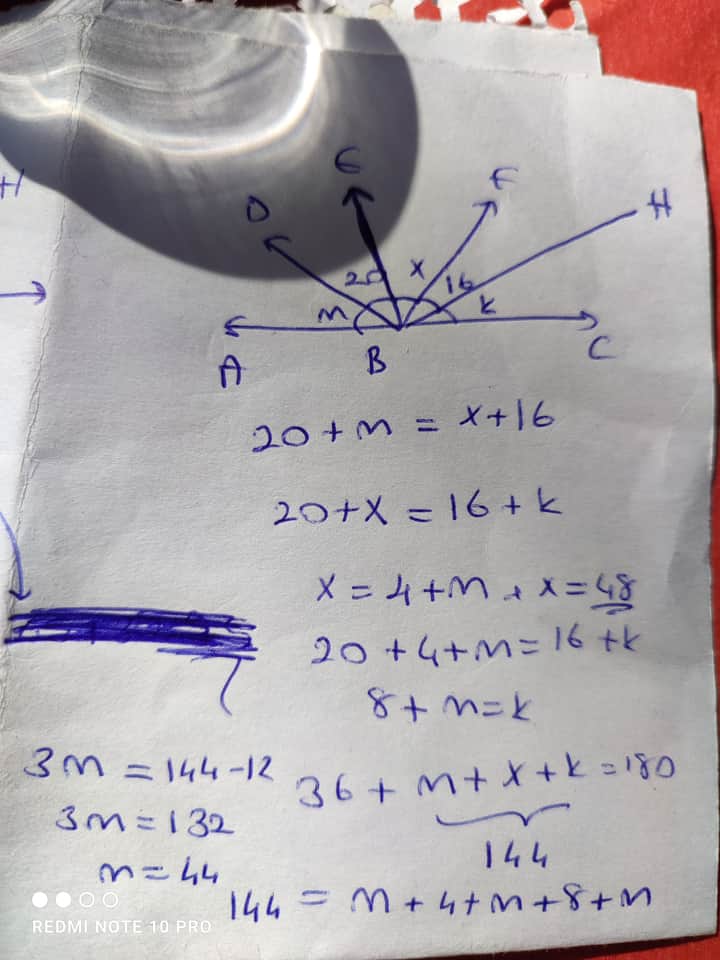 H
E
F
D
H
20
x
16
m
k
A
B
C
20 + m = x + 16
20 + x = 16 + k
x = 4 + m, x = 48
20 + 4 + m = 16 + k
8 + m = k
3m = 144 - 12
36 + m + x + k = 180
3m = 132
144
m = 44
144 = m + 4 + m + 8 + m
REDMI NOTE 10 PRO